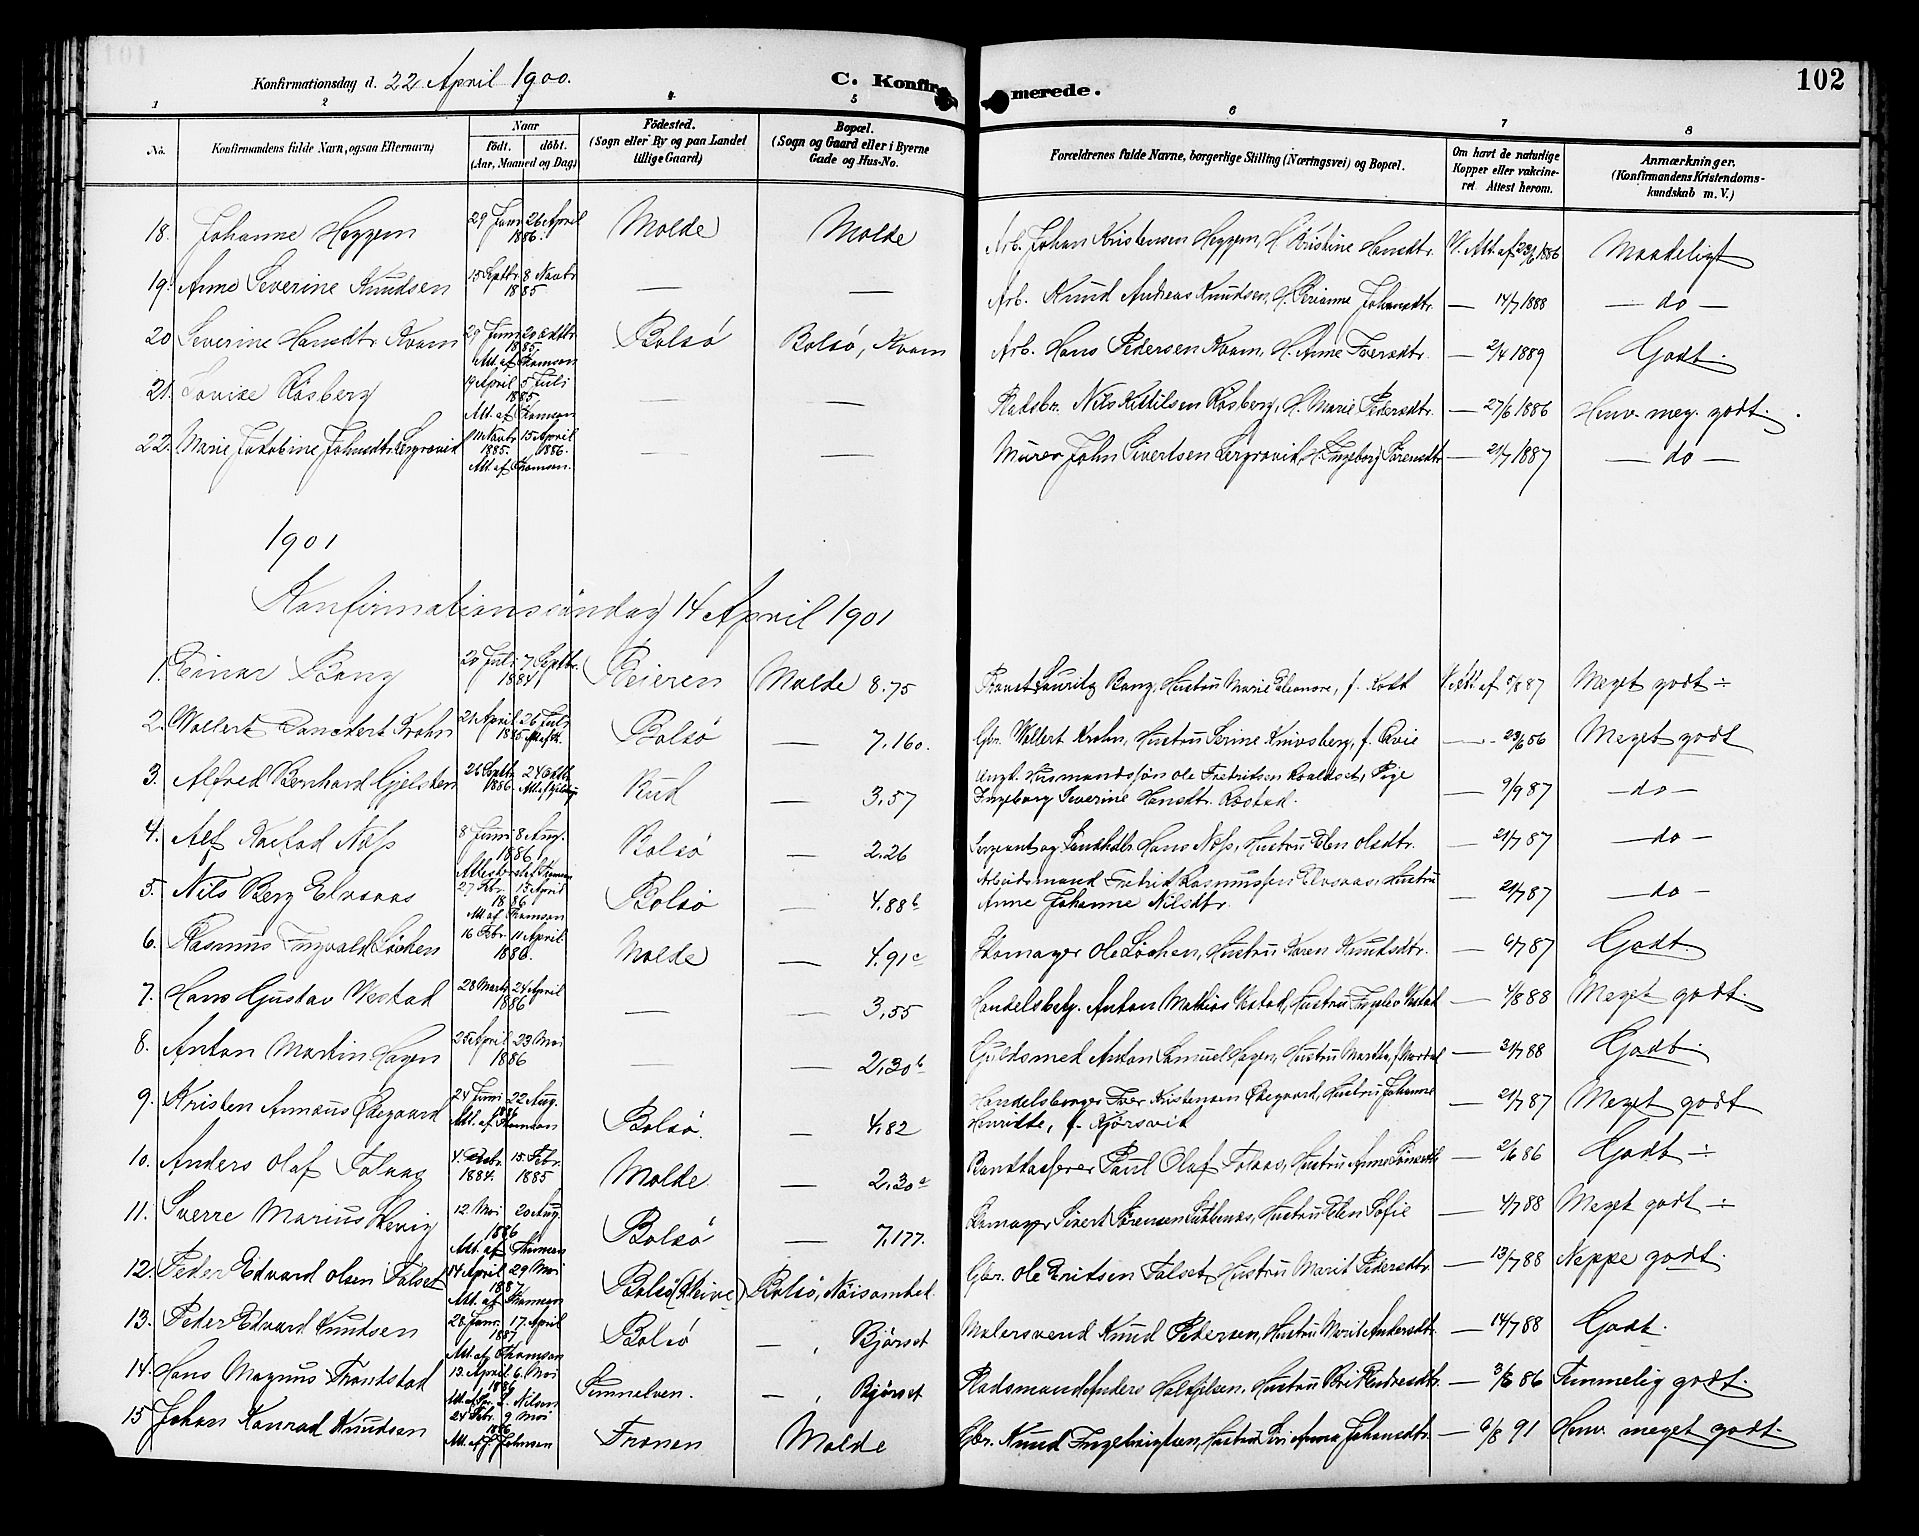 Konfirmationsdag d. 22 April 1900. C. Konfirmerede. 102
1 2 3 4 5 6 7 8
No. Konfirmandens fulde Navn, ogsaa Efternavn) Naar født. døbt. (Aar, Maaned og Dag) Fødested. (Sogn eller By og paa Landet tillige Gaard) Bopæl. (Sogn og Gaard eller i Byerne Gade og Hus-No. Forældrenes fulde Navne, borgerlige Stilling (Næringsvei) og Bopæl. Om havt de naturlige Kopper eller vakcineret Attest herom. Anmærkninger. (Konfirmandens Kristendomskundskab m. V.)
18. Johanne Heggem 29 Jan 26 April 1886. Molde Molde Arb. Johan Kristensen Heggem, H. Kristine Hansdtr. V. Att. af 23/6 1886 Maadeligt
19. Anne Severine Knudsen 15 Septbr. 8 Novbr. 1885 — — Arb. Knud Andreas Knudsen, H. Johansdtr. — 14/7 1888 — do —
20 Severine Hansdtr Kvam 29 Juni 20 Oktbr. 1885. Att. af Thomson Bolsø Bolsø, Kvam Arb. Hans Pedersen Kvam, H. Anne Iversdtr. — 2/4 1889 Godt.
21. Lovise Røsberg 19 April 5 Juli 1885. Att. af Thomson — — Pladsbr. Nils Kittilsen Røsberg, H. Marie Pedersdtr. — 27/6 1886 Henv. meg. godt.
22. Marie Jakobine Johnsdtr. Lergrovik Novbr. 1885. 15 April 1886. Att. af Thomson. — — Murer John Sivertsen Lergrovik, H. Ingeborg Sørensdtr. — 21/7 1887 — do —
1901
Konfirmationssøndag 14 April 1901
1. Einar Bang 20 Juli 7 Septbr. 1884 Beieren Molde 8.75 Provst Lauritz Bang, Hustru Marie Eleonore, f. Koht V. Att. af 5/8 87 Meget godt ÷
2. Wollert Danckert Krohn 21 April 26 Juli 1885 Bolsø — 7,160. Gbr. Wollert Krohn, Hustru Serine Knivsberg, f. Qvie — 23/6 56 Meget godt
3. Alfred Bernhard Gjelsten 26 Septbr. 24 Oktbr. 1886. Rød — 3,57 Ungk. Husmandssøn Ole Fredriksen Roaldset, Pige
Ingeborg Severine Hansdtr. Røstad. — 9/9 87 — do —
4. Alf Kastad Næss 8 Juni 8 Aug. 1886 Bolsø — 2,26 Sergeant og Landhdlr. Hans Næss, Hustru Elen Olsdtr. — 21/7 87 — do —
5. Nils Berg Elvsaas 27 Febr. 13 April 1886 Att. af Thomson Bolsø — 4.88b Arbeidsmand Fredrik Rasmussen Elvsaas, Hustru
Anne Johanne Nilsdtr. — 21/7 87 — do —
6. Rasmus Ingvald Løchen 16 Febr. 11 April. 1886. Molde — 4.91c Skomager Ole Løchen, Hustru Karen Knutsdtr. — 6/7 87 Godt
7. Hans Gustav Vestad 28 Marts 24 April 1886 — — 3,55 Handelsbetj. Anton Mathias Vestad, Hustru Vestad — 4/8 88 Meget godt.
8. Anton Martin Hagen 25 April 23 Mai 1886 — — 2,30b Guldsmed Anton Samuel Hagen, Hustru Martha, — 31/7 88 Godt.
9. Kristen Amaus Øhegaard 24 Juni 22 Aug. 1886 Att. af Thomson Bolsø. — 4,82 Handelsborger Iver Kristensen Øhegaard, Hustru Johanne
Henritte, f. Kjørsvik — 21/7 87 Meget godt
10. Anders Olaf Tolaas 4. Debr. 1884. 15. Febr. 1885 Molde — 2,30a Paul Olaf Tolaas, Hustru Anne — 2/6 86 Godt ÷
11. Sverre Marius Hevig 12 Mai 20 Aug. 1886 Att. af Thomson Bolsø — 7,177. Skomager Sivert Sørensen, Hustru Elen Sofie — 4/7 88 Meget godt ÷
12. Peder Edvard Olsen Talset 14 April 29 Mai 1887 Att. af Thomson Bolsø (Kleive) Bolsø, Gbr. Ole Eriksen Talset, Hustru Marit Pedersdtr. — 13/7 88 Neppe godt.
13. Peder Edvard Knudsen 28 Janr. 17 April 1887 Att. af Thomson Bolsø — , Bjørset Malersvend Knud Pedersen, Hustru Marit Andersdtr. — 14/7 88 Godt.
14. Hans Magnus Trondstad 13. April 6. Mai 1886 Att. af Nilsen Sunnelven. — , Bjørset Pladsmand Anders Hustru Brit — 3/8 86 Temmelig godt.
15 Johan Konrad Knudsen 24 Febr. 9 Mai 1886 Att. af J. Johnsen Frænen Molde Gbr. Knud Ingebrigtsen, Hustru Johansdtr. — 6/8 91 Henv. meget godt.